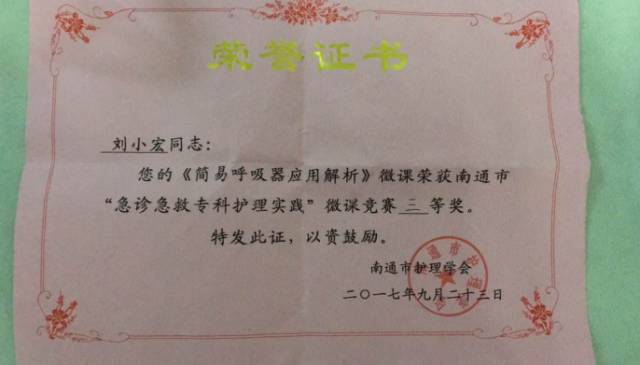 荣誉证书
刘小宏同志：
您的《简易呼吸器应用解析》微课荣获南通市
“急诊急救专科护理实践”微课竞赛 三 等奖。
特发此证，以资鼓励。
南通市护理学会
二〇一七年九月二十三日